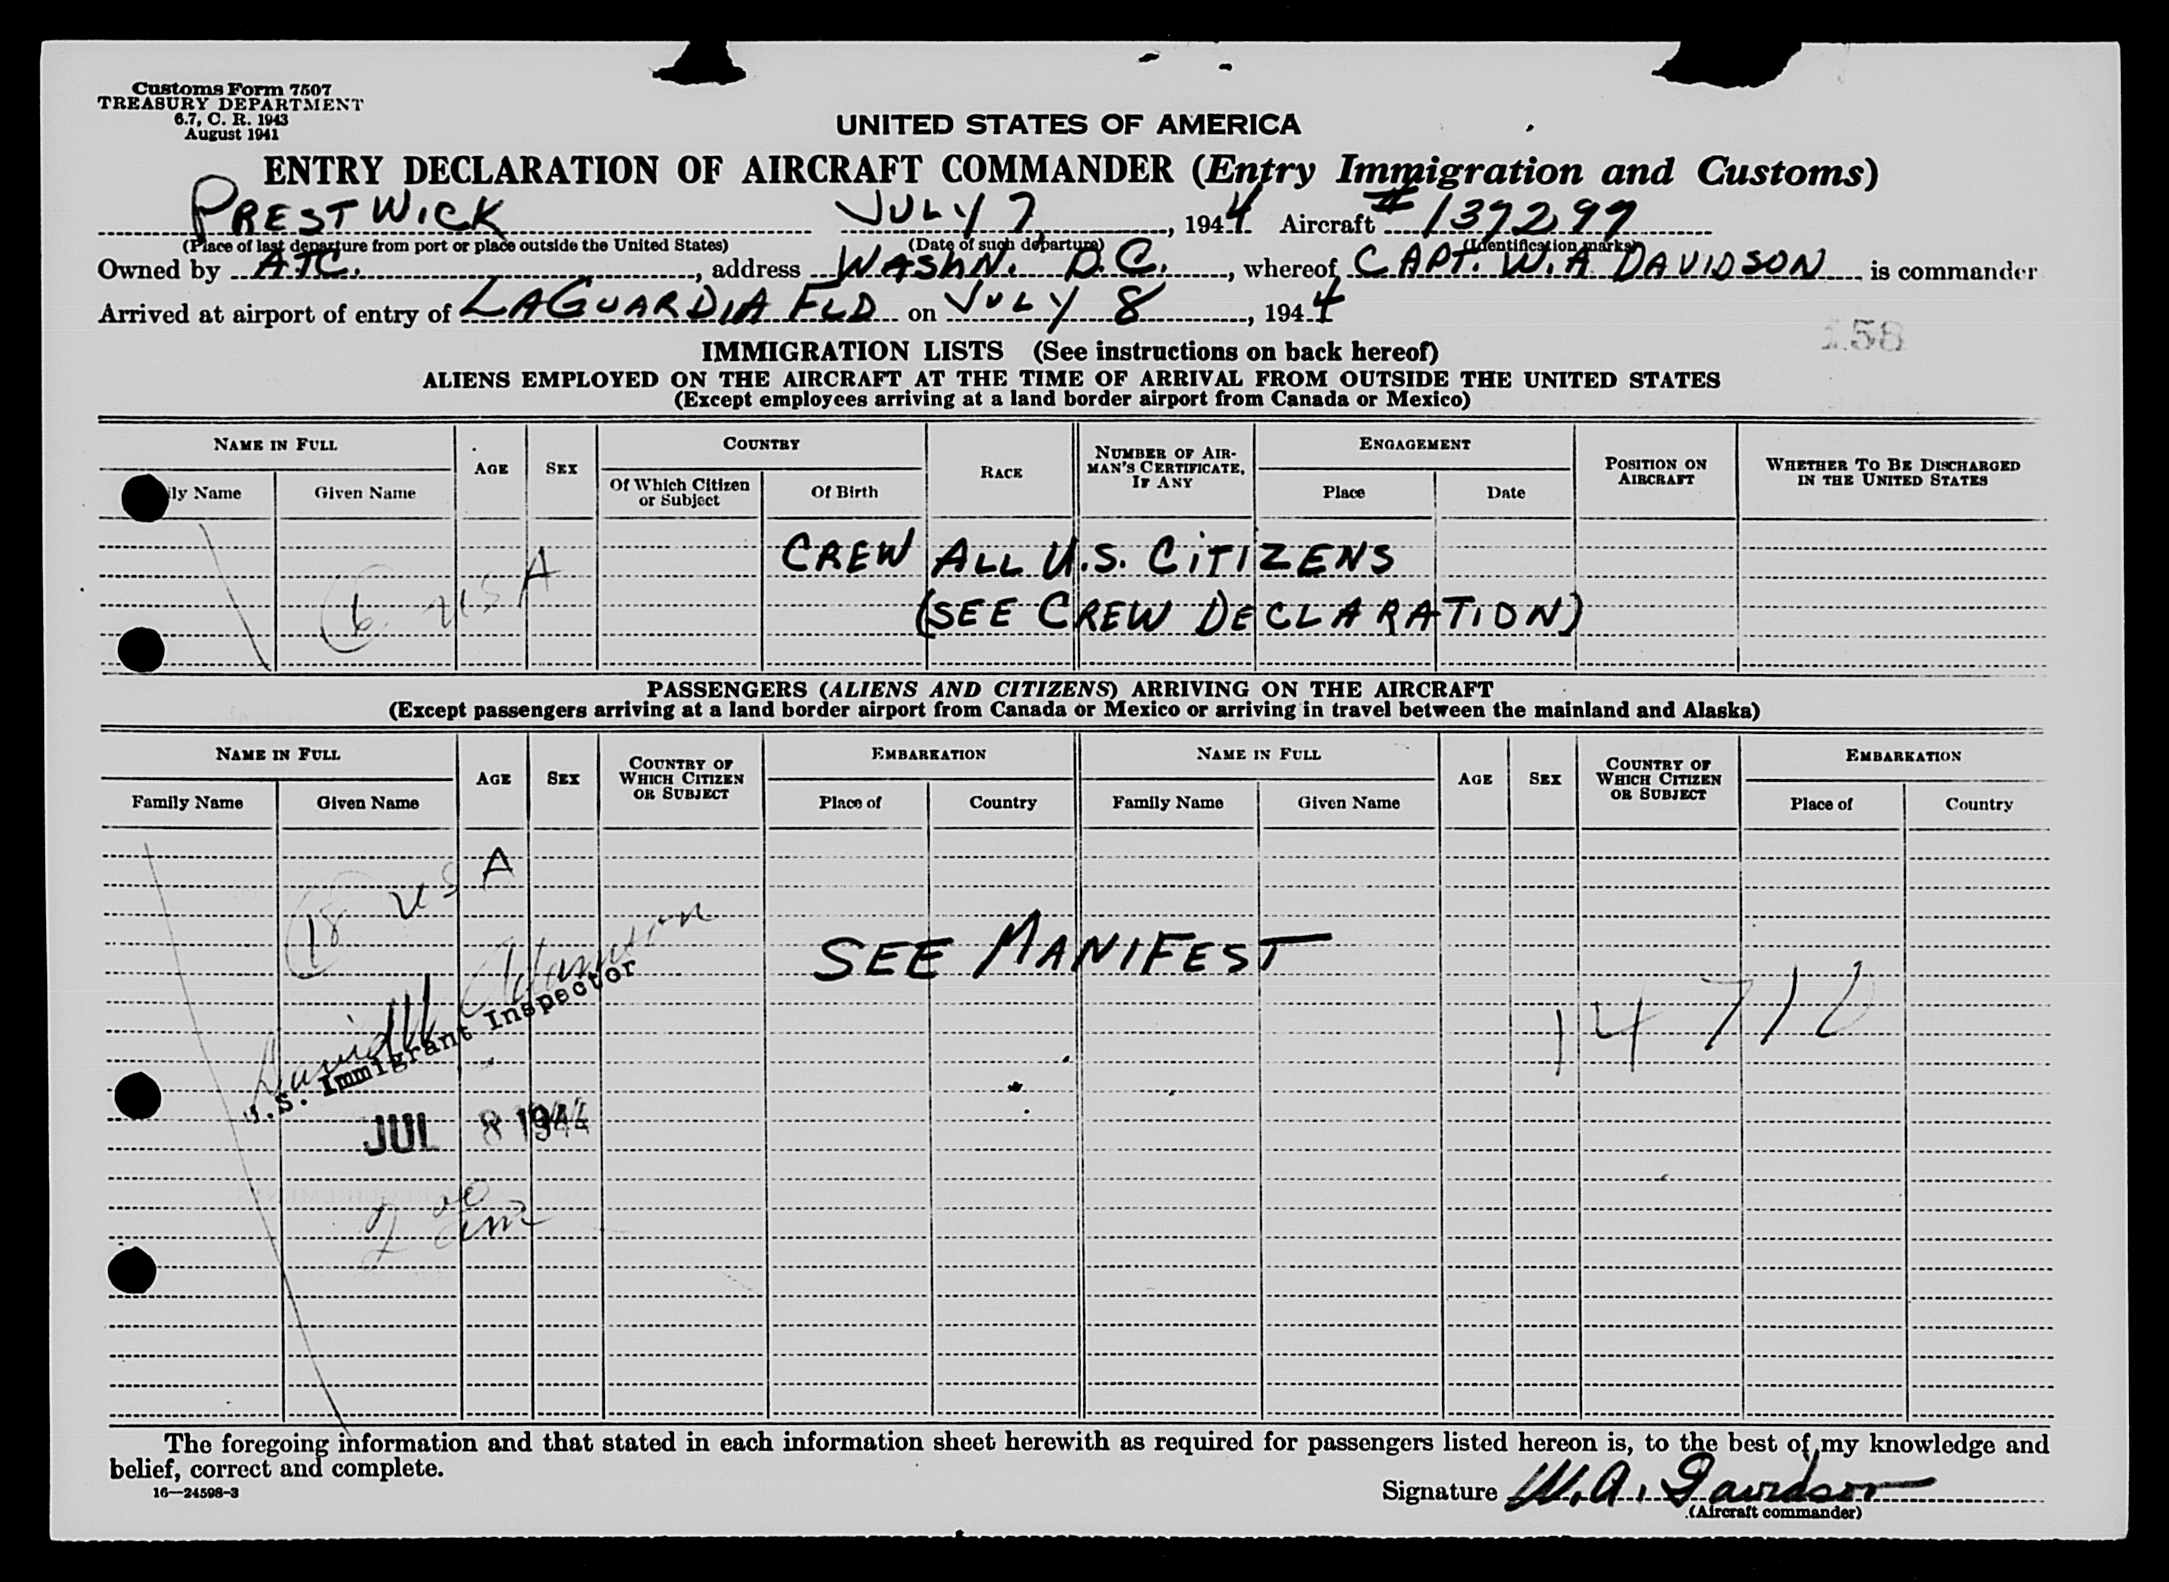 Customs Form 7507
TREASURY DEPARTMENT
6.7, C. R. 1943
August 1941
UNITED STATES OF AMERICA
ENTRY DECLARATION OF AIRCRAFT COMMANDER (Entry Immigration and Customs)
PRESTWICK JULY 7, 1944 Aircraft # 1372,97
(Place of last departure from port or place outside the United States) (Date of such departure) (Identification marks)
Owned by ATC., address WASHN. D.C., whereof CAPT. W.A DAVIDSON is commander
Arrived at airport of entry of LAGUARDIA FLD on JULY 8, 1944
158
IMMIGRATION LISTS (See instructions on back hereof)
ALIENS EMPLOYED ON THE AIRCRAFT AT THE TIME OF ARRIVAL FROM OUTSIDE THE UNITED STATES
(Except employees arriving at a land border airport from Canada or Mexico)
NAME IN FULL AGE SEX COUNTRY RACE NUMBER OF AIRMAN'S CERTIFICATE, IF ANY ENGAGEMENT POSITION ON AIRCRAFT WHETHER TO BE DISCHARGED IN THE UNITED STATES
ily Name Given Name Of Which Citizen or Subject Of Birth Place Date
CREW ALL U.S. CITIZENS
6 USA
(SEE CREW DECLARATION)
PASSENGERS (ALIENS AND CITIZENS) ARRIVING ON THE AIRCRAFT
(Except passengers arriving at a land border airport from Canada or Mexico or arriving in travel between the mainland and Alaska)
NAME IN FULL AGE SEX COUNTRY OF WHICH CITIZEN OR SUBJECT EMBARKATION NAME IN FULL AGE SEX COUNTRY OF WHICH CITIZEN OR SUBJECT EMBARKATION
Family Name Given Name Place of Country Family Name Given Name Place of Country
18 USA
SEE MANIFEST
U.S. Immigrant Inspector
JUL 8 1944
The foregoing information and that stated in each information sheet herewith as required for passengers listed hereon is, to the best of my knowledge and
belief, correct and complete.
16—24598-3
Signature W.A. Davidson
(Aircraft commander)